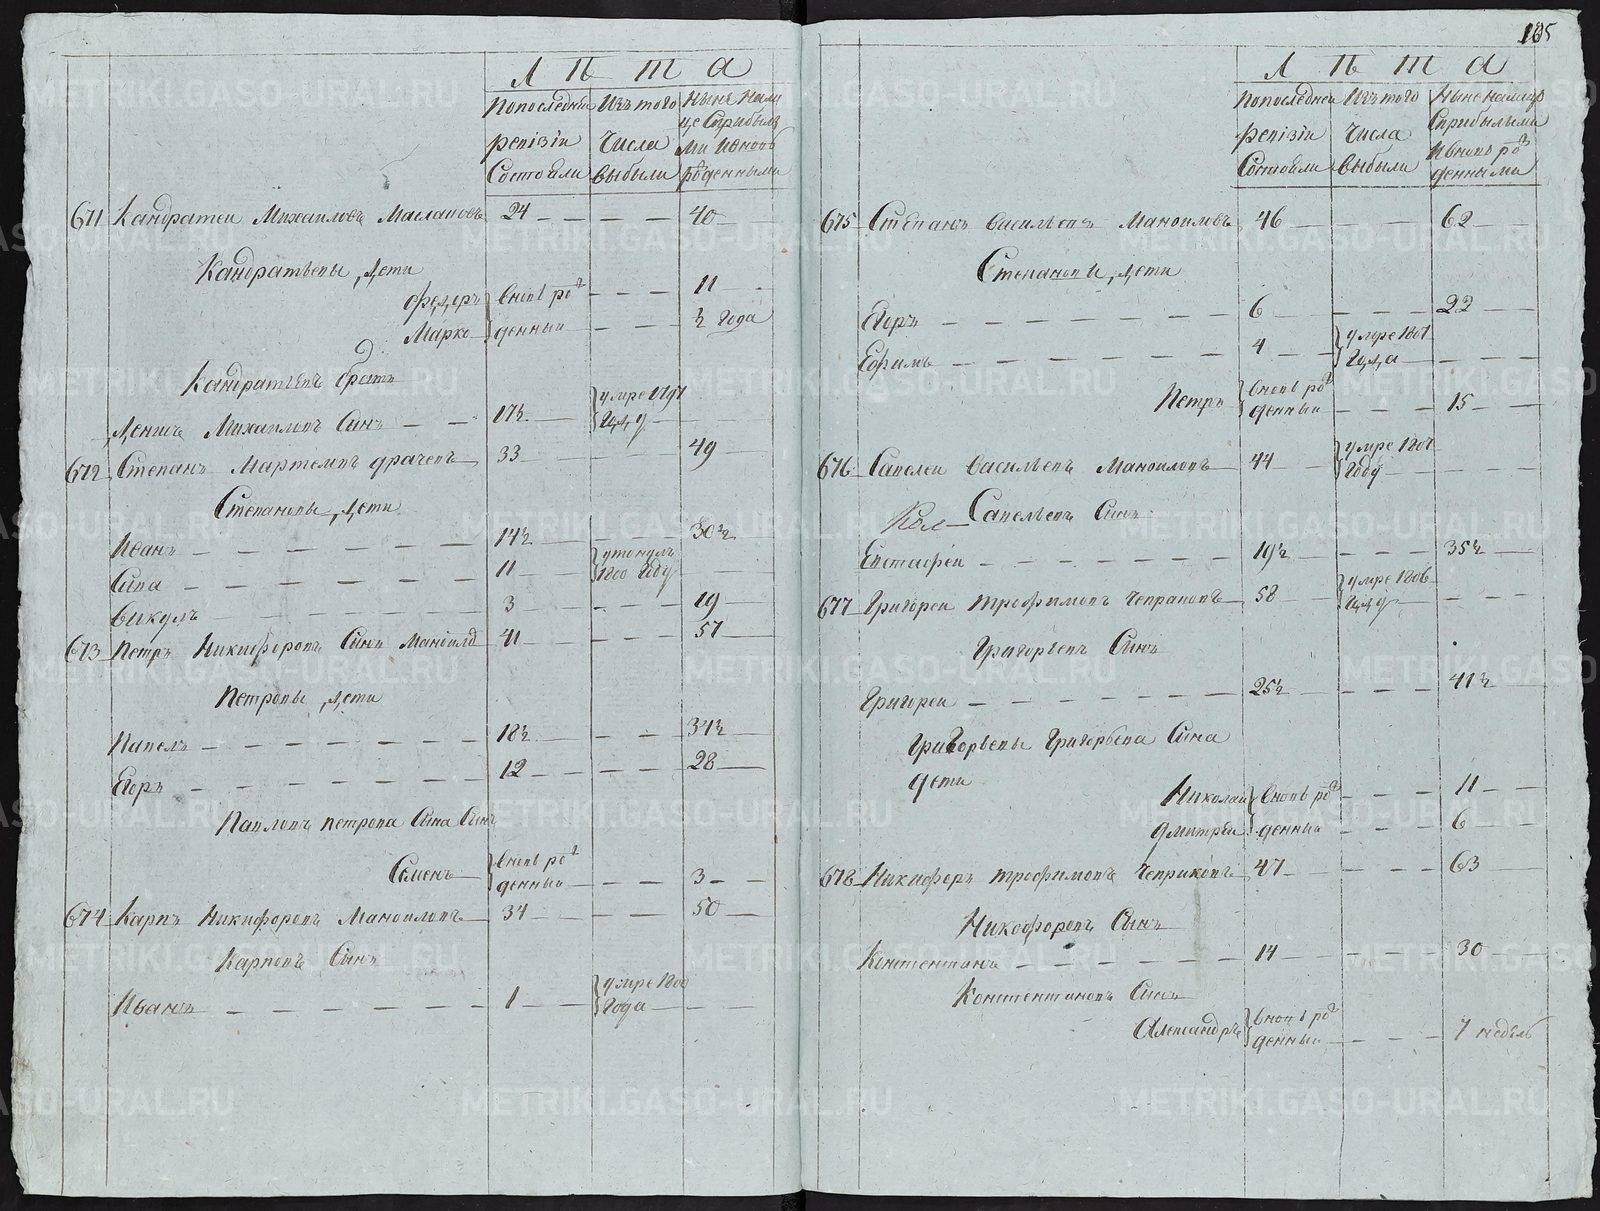 Л Ѣ Т А
Попоследнѣи ревизіи Состояли
Изътого Числа выбыли
Нынѣ Нали це Сприбылы ми ивновъ рожденными
671 Кандратеи Михаиловъ Маслаковъ 24 40
Кандратьевы дети
Федеръ вновь ро 11
Марко денныи ½ года
Кандратьевъ братъ
Денисъ Михаиловъ Синъ 17½ умре 1797 Году
672 Степанъ Мартемовъ драчевъ 33 49
Степановы дети
Иванъ 14½ 30½
Сава 11 утонулъ 1800 Году
Викулъ 3 19
673 Петръ Никифоровъ Синъ Маноилов 41 57
Петровы дети
Павелъ 18½ 34½
Егоръ 12 28
Павловъ петрова Сина Синъ
Семенъ вновь ро денныи 3
674 Карпъ Никифоровъ Маноиловъ 34 50
Карповъ Сынъ
Иванъ 1 умре 1800 Года
135
Л Ѣ Т А
Попоследнеи ревизіи Состояли
Изътого Числа выбыли
Ныне налицо Сприбылыми Ивновь ро денными
675 Степанъ Васильевъ Маноиловъ 46 62
Степановы дети
Егоръ 6 22
Ефимъ 4 умре 1801 Года
Петръ вновь ро денныи 15
676 Савелеи Васильевъ Маноиловъ 44 умре 1801 Году
Савельевъ Синъ
Евстафеи 19½ 35½
677 Григореи трофимовъ 58 умре 1806 Году
Григорьевъ Синъ
Григореи 25½ 41½
Григорьевы Григорьева Сина
дети
Николаи вновь ро 11
дмитреи денныи 6
678 Никифоръ трофимовъ 47 63
Никофоровъ Сынъ
Констентинъ 14 30
Констентиновъ Синъ
Александръ вновь ро денныи 7 недель
METRIKI.GASO-URAL.RU